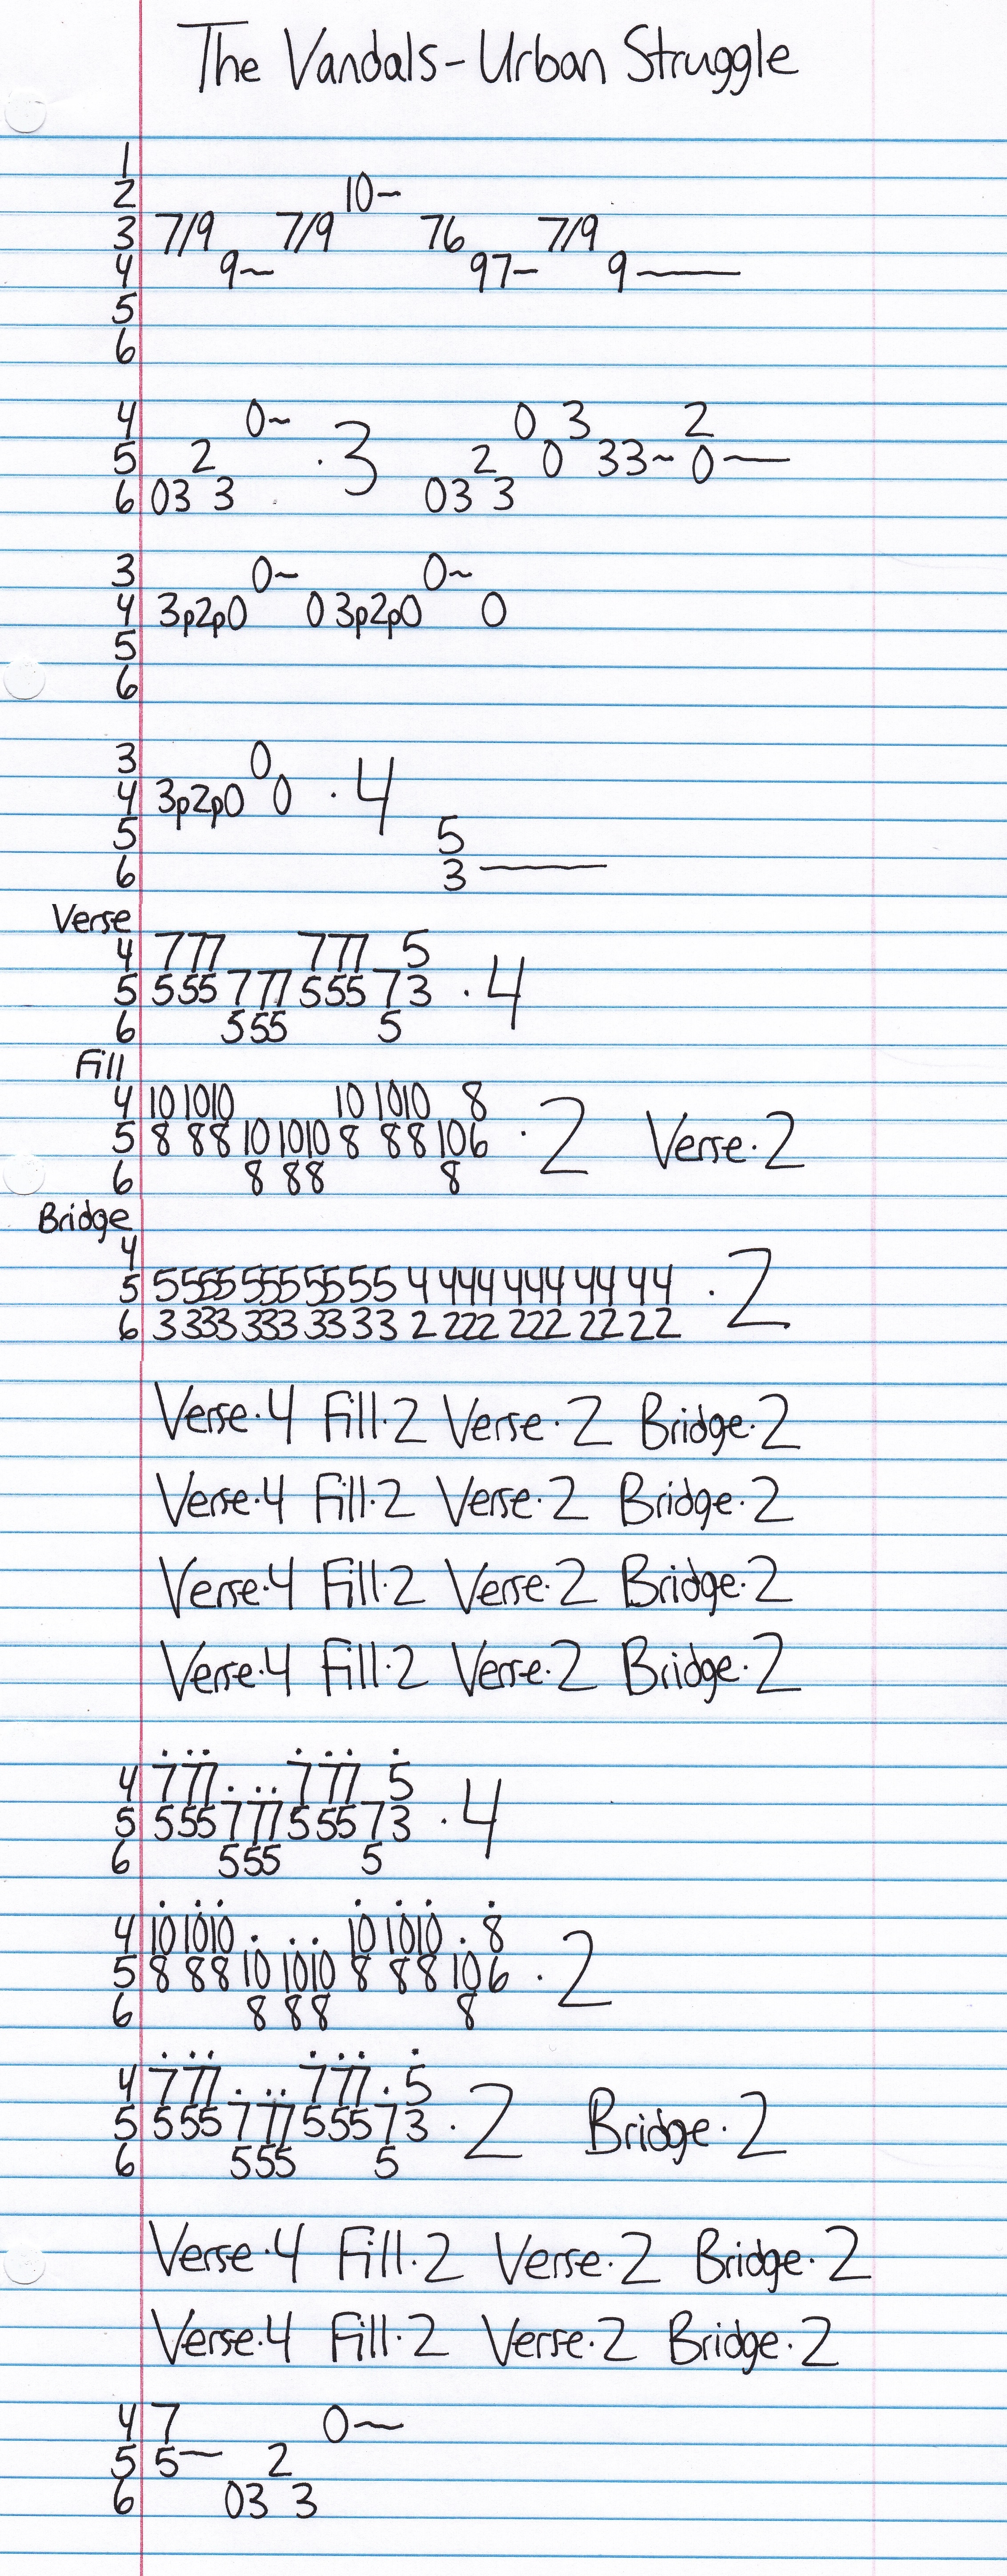 The Vandals - Urban Struggle
1
2 10~
3 7/9 7/9 76 7/9
4 9~ 97- 9———
5
6
4 0~ 0 3 2
5 2 · 3 2 0 33~ 0——
6 03 3 03 3
3 0~ 0~
4 3p2p0 0 3p2p0 0
5
6
3 0
4 3p2p0 0 · 4
5 5
6 3———
Verse
4 777 777 5
5 555 777 555 73 · 4
6 555 5
Fill
4 10 1010 10 1010 8
5 8 88 10 1010 8 88 106 · 2 Verse · 2
6 8 88 8
Bridge
4
5 5555 555 55 55 4 444 444 44 44 · 2
6 3333 333 33 33 2 222 222 22 22
Verse · 4 Fill · 2 Verse · 2 Bridge · 2
Verse · 4 Fill · 2 Verse · 2 Bridge · 2
Verse · 4 Fill · 2 Verse · 2 Bridge · 2
Verse · 4 Fill · 2 Verse · 2 Bridge · 2
4 777 ... 777 5
5 555 777 555 73 · 4
6 555 5
4 10 1010 . .. 10 1010 . 8
5 8 88 10 1010 8 88 10 6 · 2
6 8 88 8
4 777 ... 777 . 5
5 555 777 555 73 · 2 Bridge · 2
6 555 5
Verse · 4 Fill · 2 Verse · 2 Bridge · 2
Verse · 4 Fill · 2 Verse · 2 Bridge · 2
4 7 0~
5 5~ 2
6 03 3